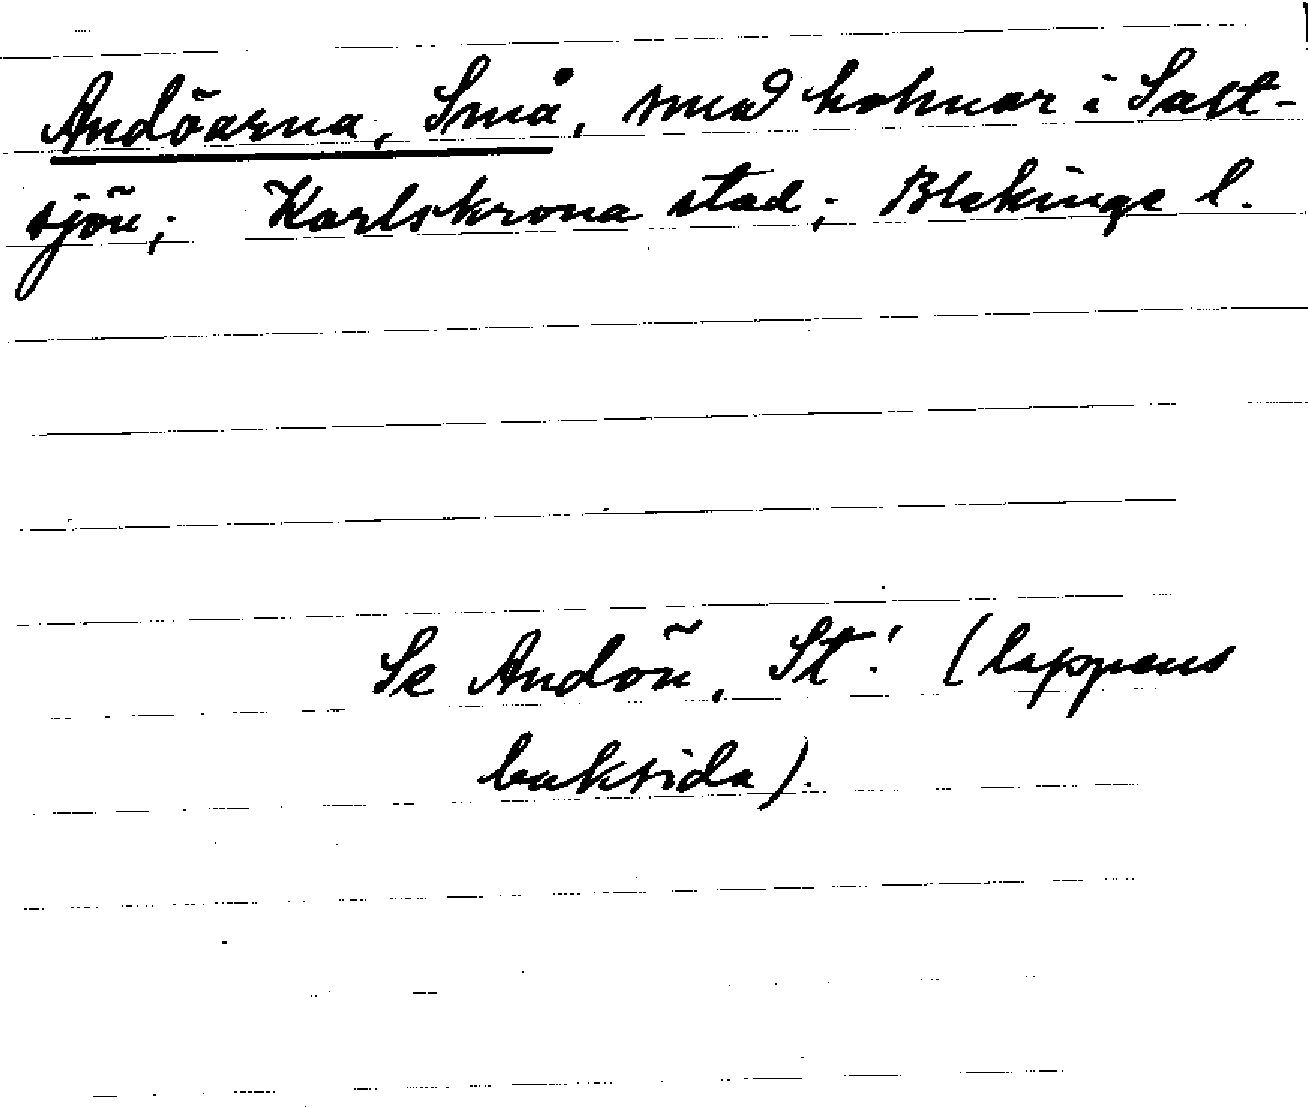 Andöarna, Små, små holmar i Salt-
sjön; Karlskrona stad; Blekinge l.
Se Andön, St! (lappens
baksida).